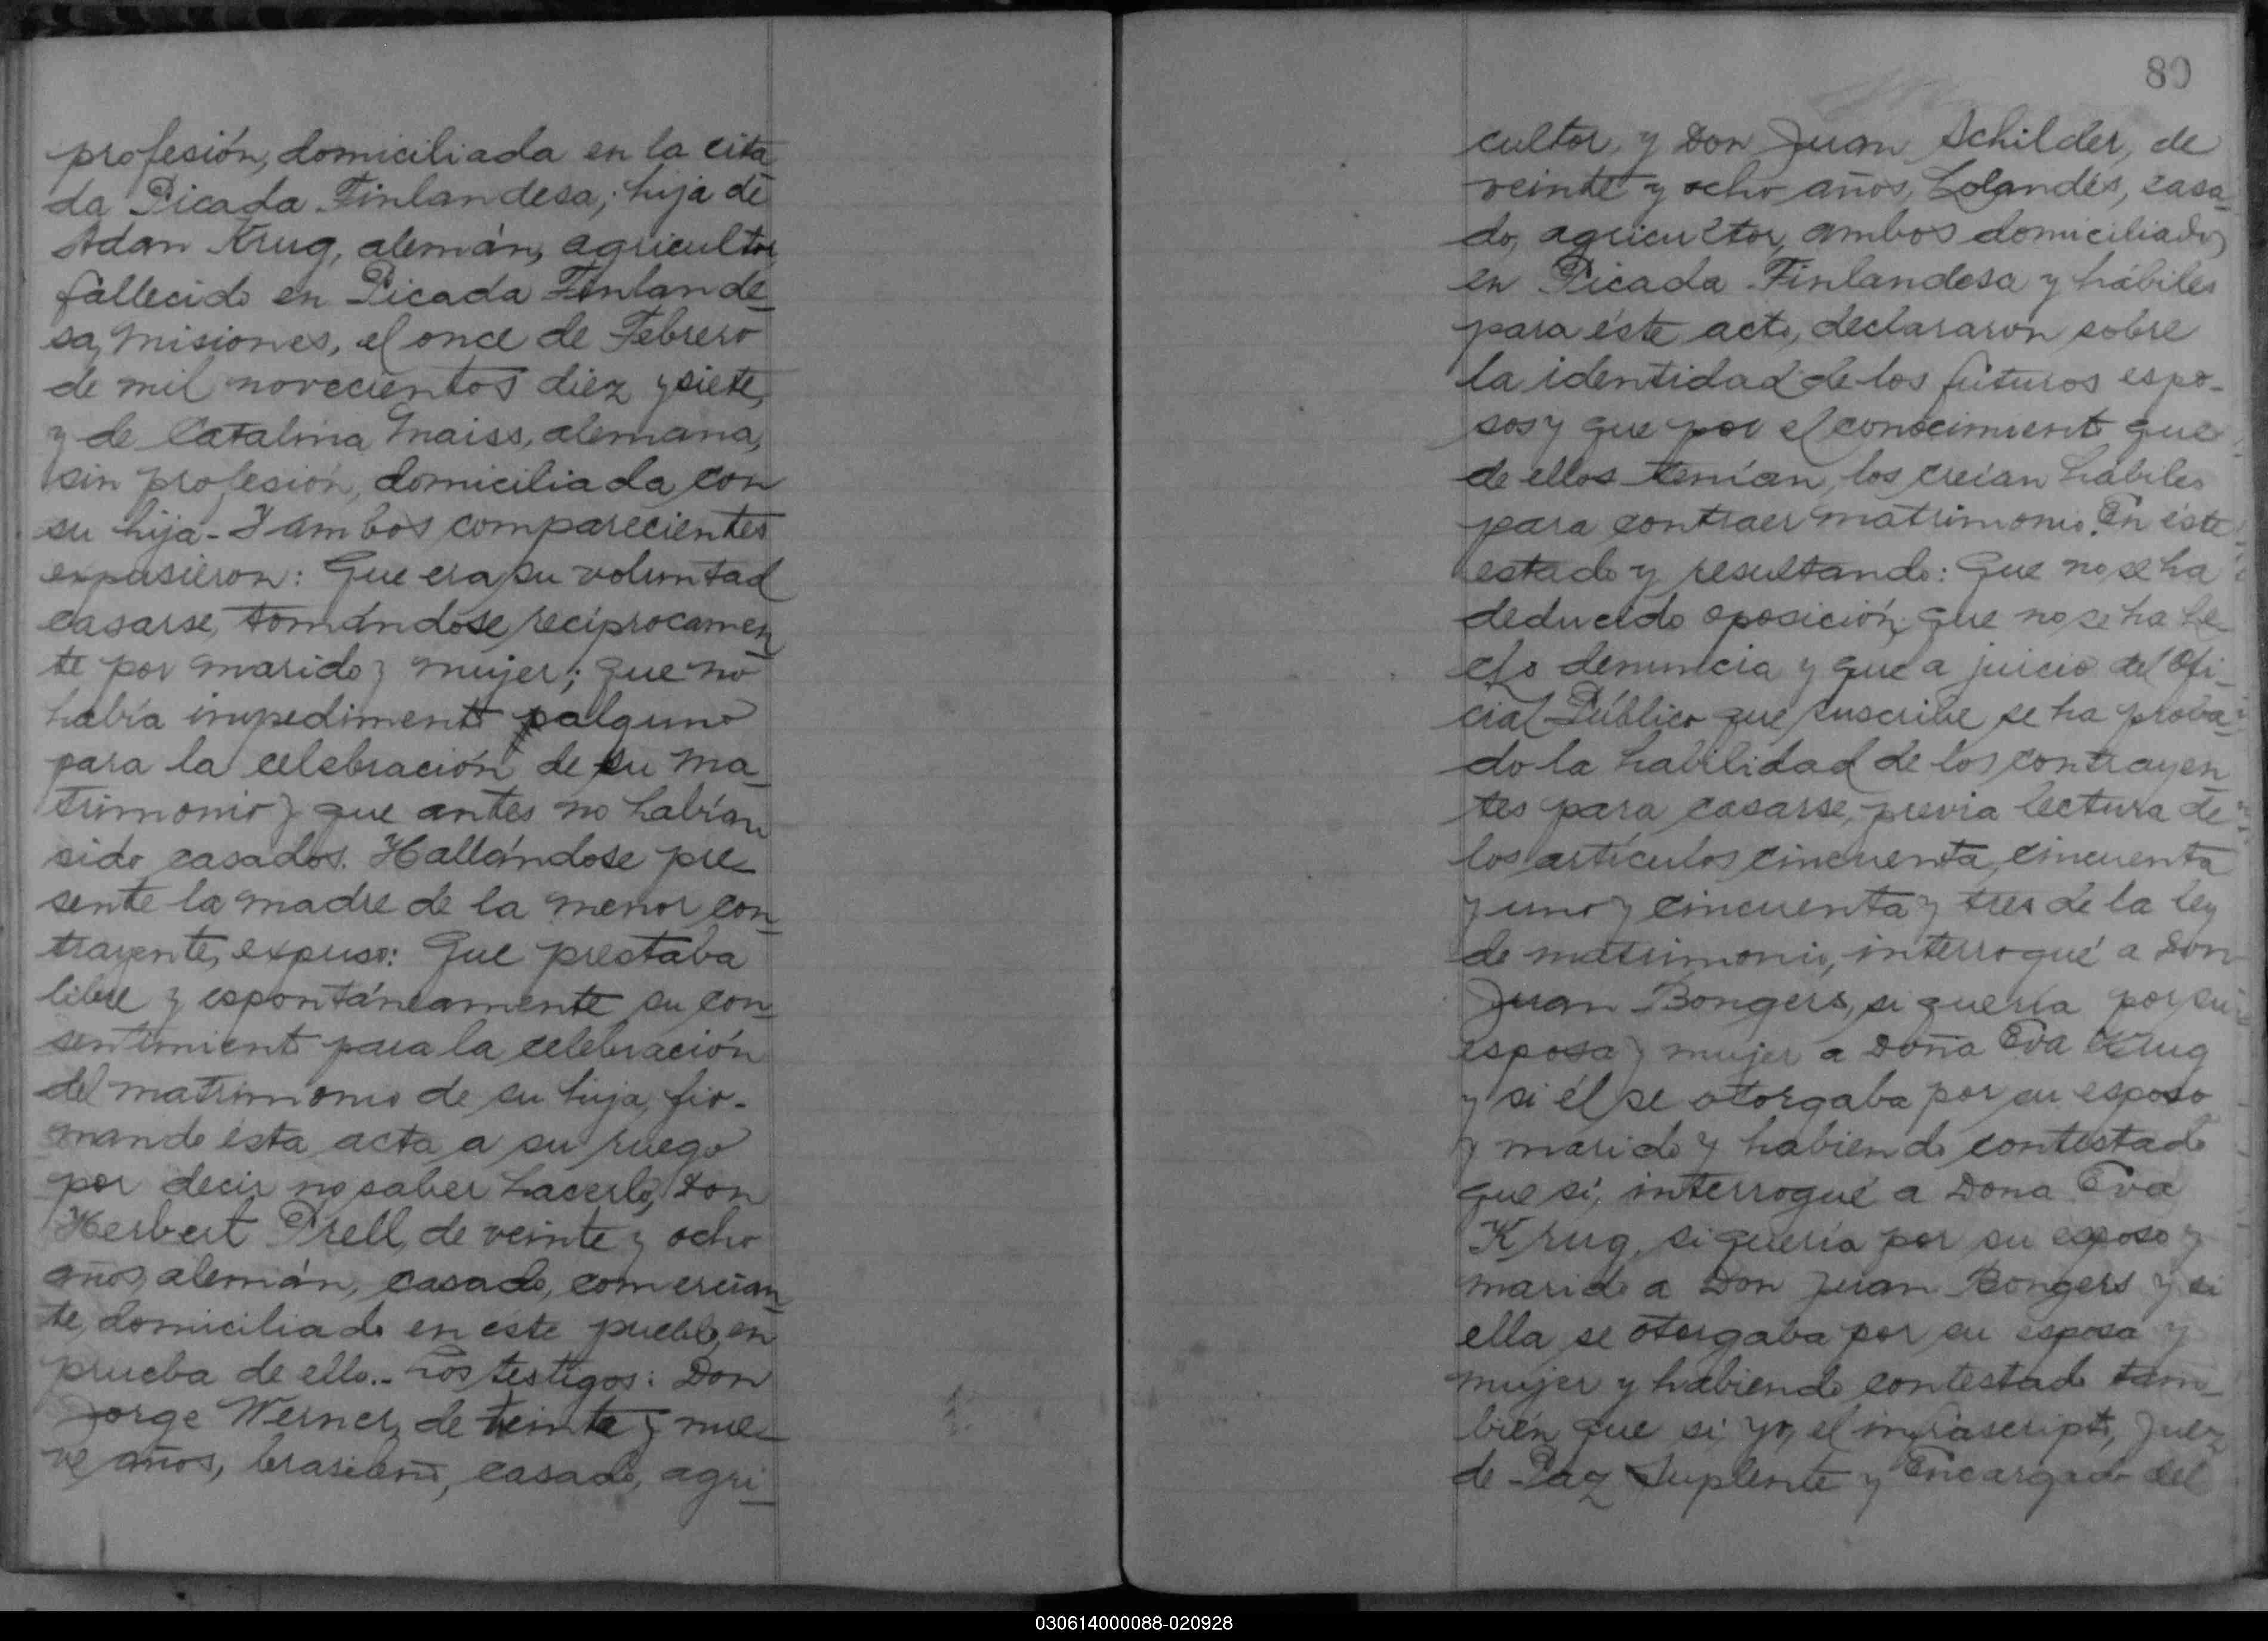 profesión, domiciliada en la cita
da Picada Finlandesa; hija de
Adan Krug, alemán, agricultor
fallecido en Picada Finlande
sa, Misiones, el once de Febrero
de mil novecientos diez y siete,
y de Catalina Maiss, alemana,
sin profesión, domiciliada con
su hija.- Y ambos comparecientes
expusieron: Que era su voluntad
casarse, tomándose reciprocamen
te por marido y mujer; que no
había impedimento alguno
para la celebración de su ma
trimonio y que antes no habían
sido casados. Hallándose pre
sente la madre de la menor con
trayente, expuso: Que prestaba
libre y espontáneamente su con
sentimiento para la celebración
del matrimonio de su hija, fir-
mando ésta acta a su ruego
por decir no saber hacerlo, Don
Herbert Prell, de veinte y ocho
años, alemán, casado, comercian
te, domiciliado en éste pueblo, en
prueba de ello.- Los testigos: Don
Jorge Werner, de veinte y nue
ve años, brasileño, casado, agri
80
cultor, y Don Juan Schilder, de
veinte y ocho años, holandés, casa
do, agricultor, ambos domiciliados
en Picada Finlandesa y hábiles
para éste acto, declararon sobre
la identidad de los futuros espo-
sos y que por el conocimiento que
de ellos tenían, los creían hábiles
para contraer matrimonio. En éste
estado y resultando: Que no se ha
deducido oposición, que no se ha he
cho denuncia y que a juicio del Ofi
cial Público que suscribe se ha proba
do la habilidad de los contrayen
tes para casarse, previa lectura de
los artículos cincuenta, cincuenta
y uno y cincuenta y tres de la ley
de matrimonio, interrogué a Don
Juan Bongers, si quería por su
esposa y mujer a Doña Eva Krug
y si él se otorgaba por su esposo
y marido y habiendo contestado
que sí, interrogué a Dona Eva
Krug, si quería por su esposo y
marido a Don Juan Bongers y si
ella se otorgaba por su esposa y
mujer y habiendo contestado tam
bién que si, yo, el infrascripto, Juez
de Paz Suplente y Encargado del
030614000088-020928